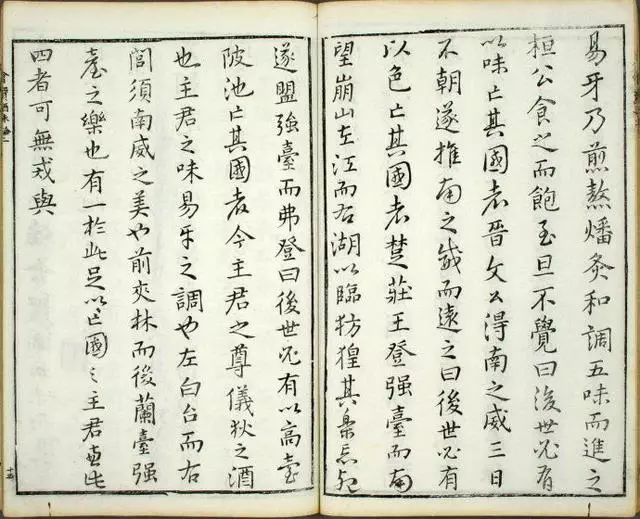 易牙乃煎熬燔炙和調五味而進之
桓公食之而飽至旦不覺曰後世必有
以味亡其國者晉文公得南之威三日
不朝遂推南之威而遠之曰後世必有
以色亡其國者楚莊王登强臺而南
望崩山左江而右湖以臨彷徨其樂忘死
遂盟强臺而弗登曰後世必有以高臺
陂池亡其國者今主君之尊儀狄之酒
也主君之味易牙之調也左白台而右
閭須南威之美也前夾林而後蘭臺强
臺之樂也有一於此足以亡國今主君兼此
四者可無戒與